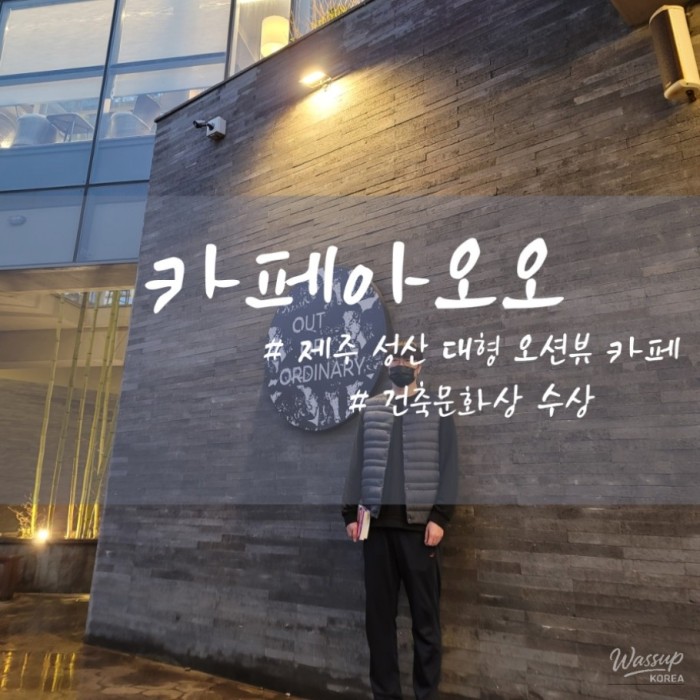 카페아오오
OUT
# 제주 성산 대형 오션뷰 카페
ORDINARY
# 건축문화상 수상
Wassup
KOREA